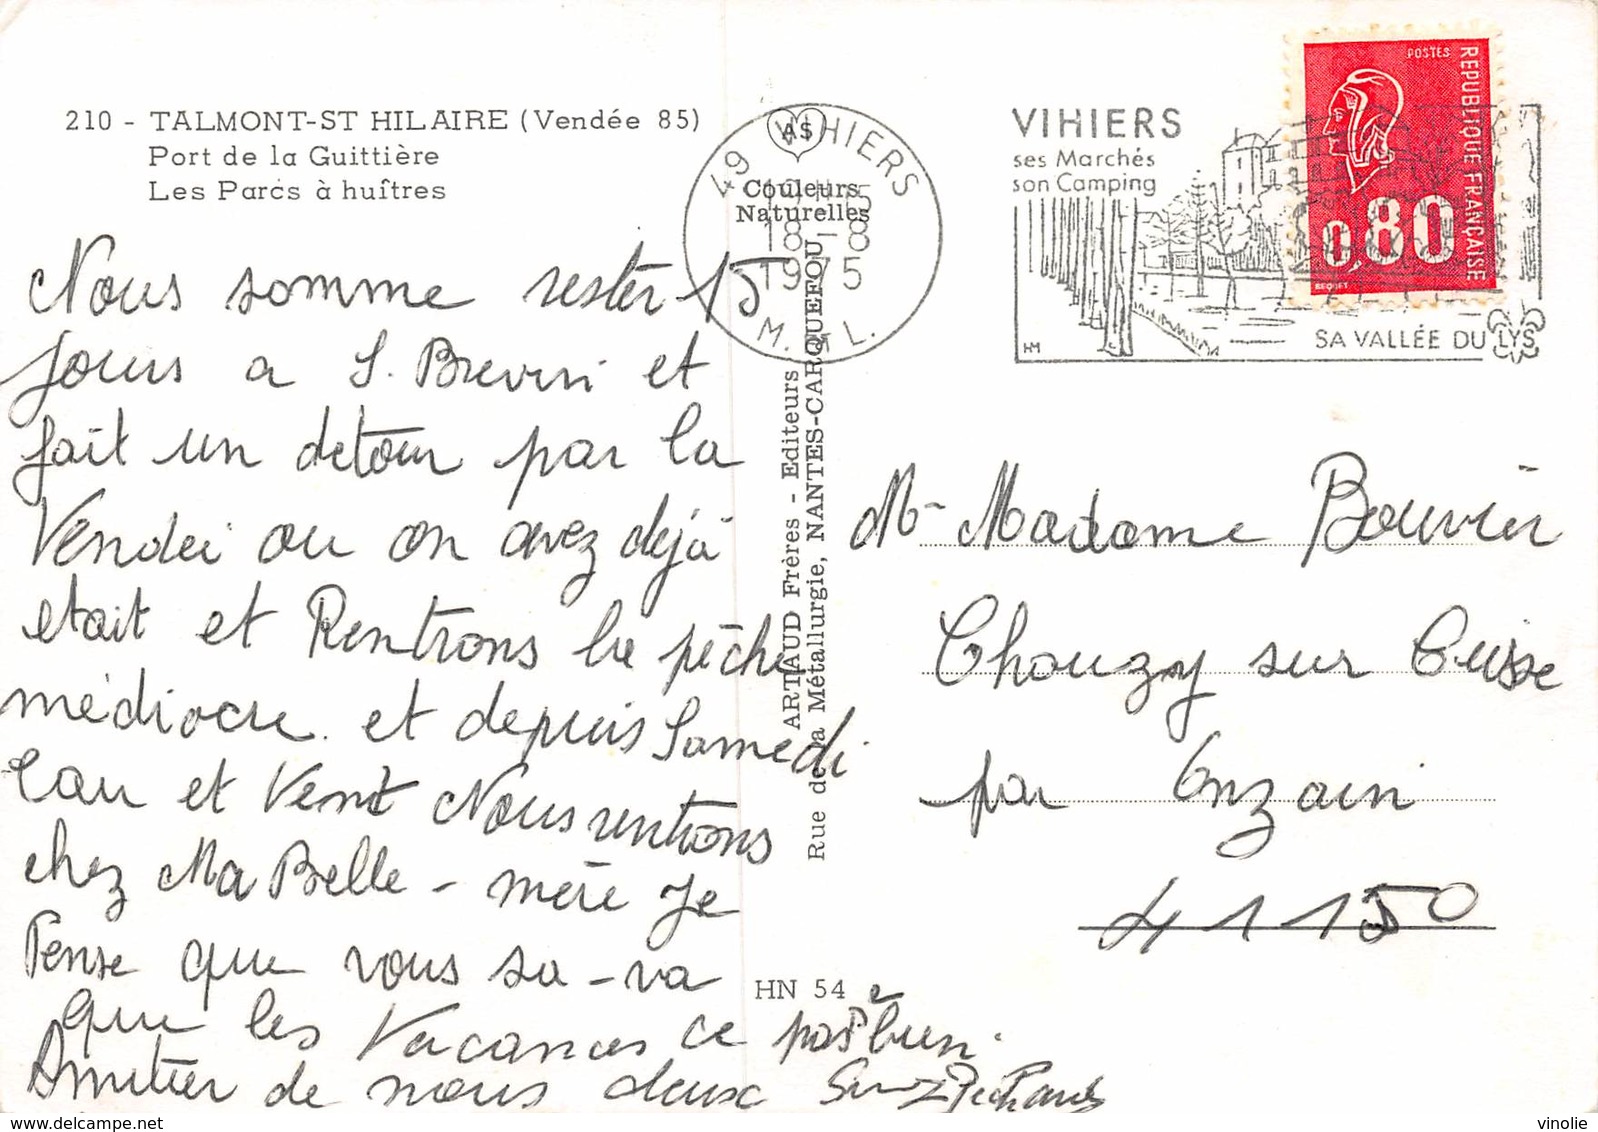 210 - TALMONT-ST HILAIRE (Vendée 85)
Port de la Guittière
Les Parcs à huîtres
AS
Couleurs
Naturelles
49 VIHIERS
18-8
1975
M. & L.
VIHIERS
ses Marchés
son Camping
SA VALLÉE DU LYS
HM
POSTES
REPUBLIQUE FRANÇAISE
0,80
BEQUET
Nous somme rester 15
jours a S. Brevin et
fait un detour par la
Vendei ou on avez dejà
etait et Rentrons la pêche
médiocre. et depuis Samedi
Eau et Vent Nous rentrons
chez Ma Belle - mère Je
Pense que vous sa-va
que les Vacances ce passe bien.
Amitier de nous deux
ARTAUD Frères - Editeurs
Rue de la Métallurgie, NANTES-CARQUEFOU
HN 54
M- Madame Bouvier
Chouzy sur Cisse
par Onzain
41150
vinolie